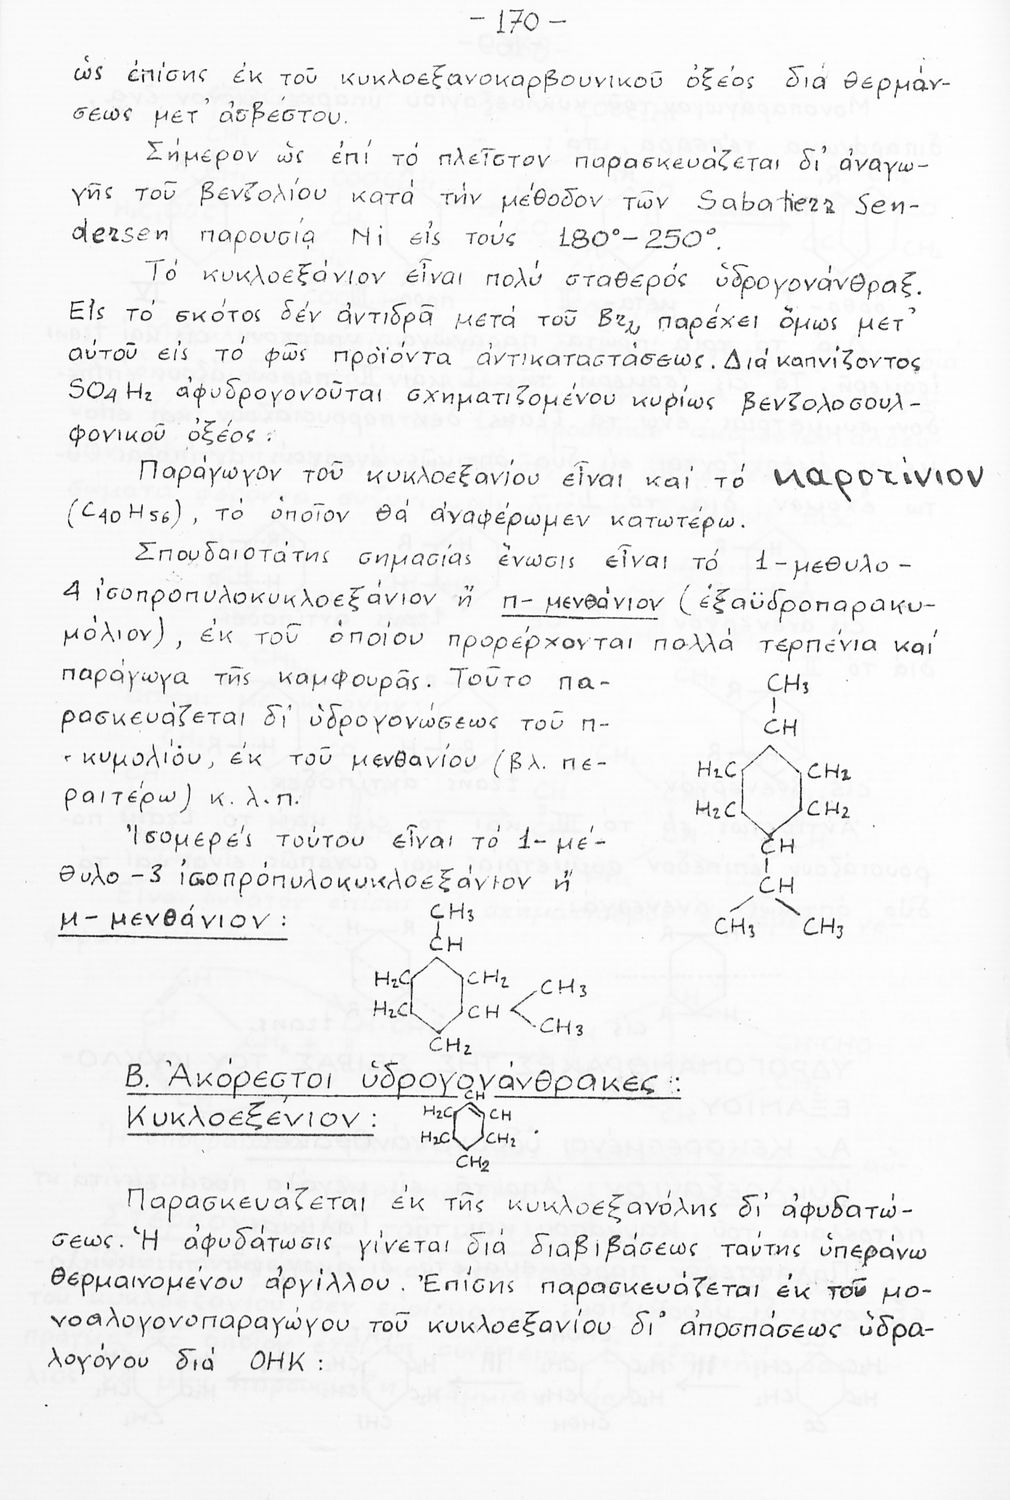 - 170 -
ὡς ἐπίσης ἐκ τοῦ κυκλοεξανοκαρβουνικοῦ ὀξέος διά θερμάν-
σεως μετ' ἀσβέστου.
Σήμερον ὡς ἐπί τό πλεῖστον παρασκευάζεται δι' ἀναγω-
γῆς τοῦ βενζολίου κατά τήν μέθοδον τῶν Sabatierr Sen-
dersen παρουσίᾳ Ni εἰς τούς 180°-250°.
Τό κυκλοεξάνιον εἶναι πολύ σταθερός ὑδρογονάνθραξ.
Εἰς τό σκότος δέν ἀντιδρᾶ μετά τοῦ Br₂, παρέχει ὅμως μετ'
αὐτοῦ εἰς τό φῶς προϊόντα ἀντικαταστάσεως. Διά καπνίζοντος
SO4H2 ἀφυδρογονοῦται σχηματιζομένου κυρίως βενζολοσουλ-
φονικοῦ ὀξέος:
Παράγωγον τοῦ κυκλοεξανίου εἶναι καί τό καροτίνιον
(C40H56), τό ὁποῖον θά ἀναφέρωμεν κατωτέρω.
Σπουδαιοτάτης σημασίας ἕνωσις εἶναι τό 1-μεθυλο-
4 ἰσοπροπυλοκυκλοεξάνιον ἤ π-μενθάνιον (ἑξαϋδροπαρακυ-
μόλιον), ἐκ τοῦ ὁποίου προρέρχονται πολλά τερπένια καί
παράγωγα τῆς καμφουρᾶς. Τοῦτο πα-
ρασκευάζεται δι' ὑδρογονώσεως τοῦ π-
κυμολίου, ἐκ τοῦ μενθανίου (βλ. πε-
ραιτέρω) κ.λ.π.
CH3
CH
H2C CH2
H2C CH2
CH
CH
CH3 CH3
Ἰσομερές τούτου εἶναι τό 1-μέ-
θυλο-3 ἰσοπρόπυλοκυκλοεξάνιον ἤ
μ-μενθάνιον:
CH3
CH
H2C CH2 CH3
H2C CH CH3
CH2
Β. Ἀκόρεστοι ὑδρογονάνθρακες:
Κυκλοεξένιον:
CH
H2C CH
H2C CH2
CH2
Παρασκευάζεται ἐκ τῆς κυκλοεξανόλης δι' ἀφυδατώ-
σεως. Ἡ ἀφυδάτωσις γίνεται διά διαβιβάσεως ταύτης ὑπεράνω
θερμαινομένου ἀργίλλου. Ἐπίσης παρασκευάζεται ἐκ τοῦ μο-
νοαλογονοπαραγώγου τοῦ κυκλοεξανίου δι' ἀποσπάσεως ὑδρα-
λογόνου διά ΟΗΚ: